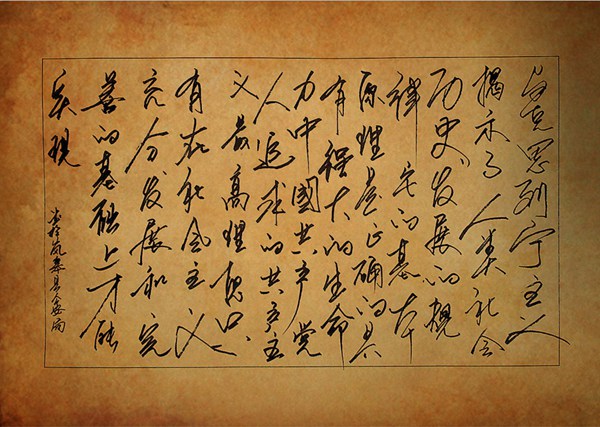 马克思列宁主义
揭示了人类社会
历史发展的规
律 它的基本
原理是正确的具
有强大的生命
力中國共产党
人追求的共产主
义最高理想只
有在社会主义
充分发展和完
善的基础上才能
实现
岚皋县公安局